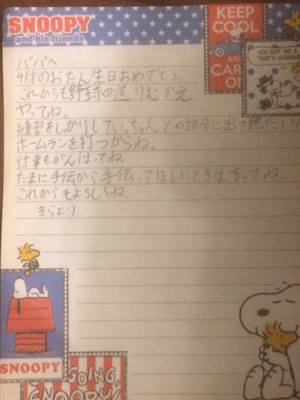 SNOOPY
and his friends
KEEP
COOL
AND
CAR
ON
YOU GOT ME A
THIS WONDER
パパへ
4才のおたん生日おめでとう。
これからも野球の送りむかえ
やってね。
練習をしかりして、いっちゃんとの試合に出て絶たい
ホームランを打つからね。
仕事もがんばってね
たまに手伝から手伝ってほしいときは、言ってね、
これからもよろしくね
きらより
SNOOPY
GOING
SNOOPY